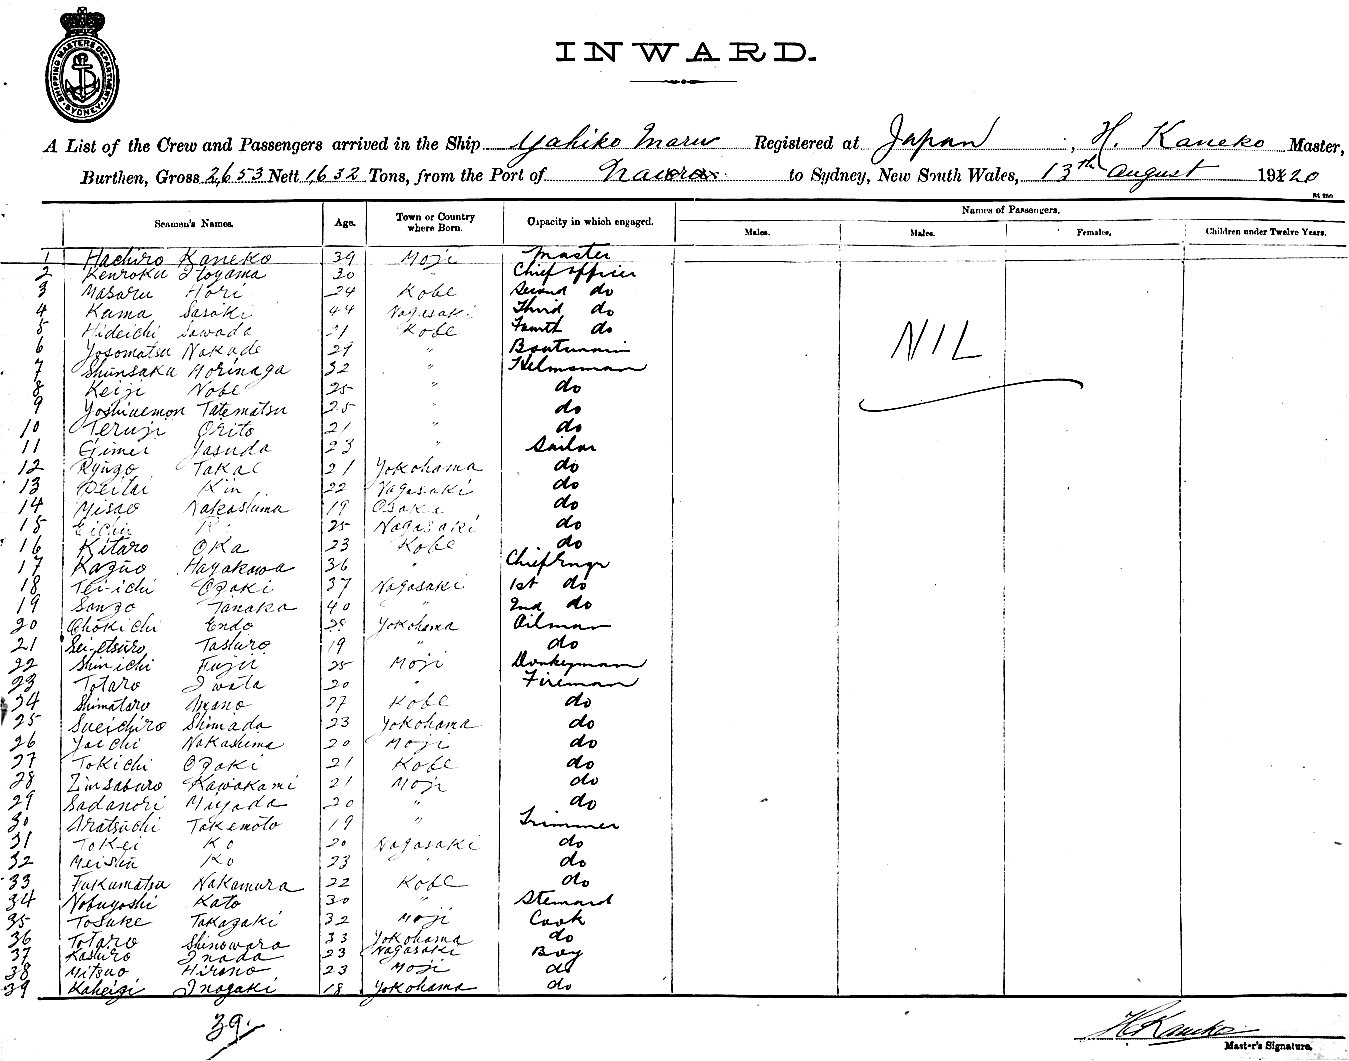 SHIPPING MASTERS DEPARTMENT
SYDNEY
INWARD.
A List of the Crew and Passengers arrived in the Ship Yahiko Maru Registered at Japan, H. Kaneko Master,
Burthen, Gross 2653 Nett 1632 Tons, from the Port of to Sydney, New South Wales, 13th August 1920
Seamen's Names. Age. Town or Country where Born. Capacity in which engaged. Names of Passengers.
Males. Males. Females. Children under Twelve Years.
1 Hachiro Kaneko 39 Moji Master
2 Kenroku Itoyama 30 " Chief Officer
3 Masaru Hori 24 Kobe Second do
4 Kama Sasaki 44 Nagasaki Third do
5 Hideichi Sawada 21 Kobe Fourth do
NIL
6 Yosomatsu Nakade 29 "
7 Shunsaku Morinaga 32 " Helmsman
8 Keiji Nobe 25 " do
9 Yoshiuemon Tatematsu 25 " do
10 Teruji Orito 21 " do
11 Yasuda 23 " Sailor
12 Ryugo Takae 21 Yokohama do
13 Kin 22 Nagasaki do
14 Misao Nakashima 19 Osaka do
15 25 Nagasaki do
16 Kitaro Oka 23 Kobe do
17 Kazuo Hayakawa 36 " Chief Engr
18 Tei-ichi Ozaki 37 Nagasaki 1st do
19 Sango Tanaka 40 " 2nd do
20 Chokichi Endo 28 Yokohama Oilman
21 Sei-etsuro Tashiro 19 " do
22 Shin-ichi Fujii 25 Moji Donkeyman
23 Totaro Iwata 20 " Fireman
24 Shimataro 27 Kobe do
25 Sueichiro Shimada 23 Yokohama do
26 Yaichi Nakashima 20 Moji do
27 Tokichi Ozaki 21 Kobe do
28 Zinsaburo Kawakami 21 Moji do
29 Sadanori Miyada 20 " do
30 Aratsuchi Takemoto 19 " Trimmer
31 Tokei Ko 20 Nagasaki do
32 Meishu Ko 23 " do
33 Fukumatsu Nakamura 22 Kobe do
34 Nobuyoshi Kato 30 " Steward
35 Tosuke Takazaki 32 Moji Cook
36 Totaro Shinowara 33 Yokohama do
37 Kashiro Inada 23 Nagasaki Boy
38 Mitsuo Hirano 23 Moji do
39 Kaheiji Inagaki 18 Yokohama do
39.
H Kaneko
Master's Signature.